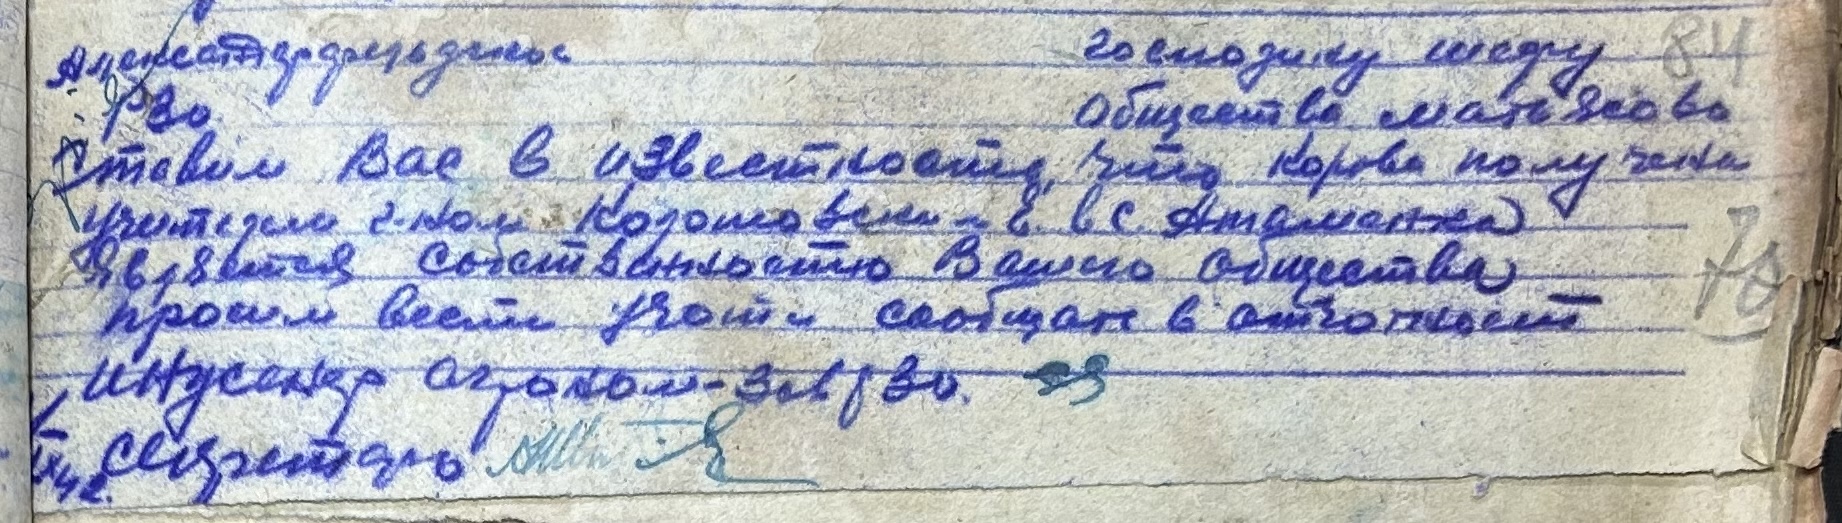 Александрфельдское Господину шефу 84
РЗО. Общества Матьясово
ставим Вас в известность, что корова получена
учителем г-ном в с. Атаманка
является собственностью Вашего общества
просим вести учот и сообщат в отчотност 78
инженер агроном-зав РЗО.
Секретарь